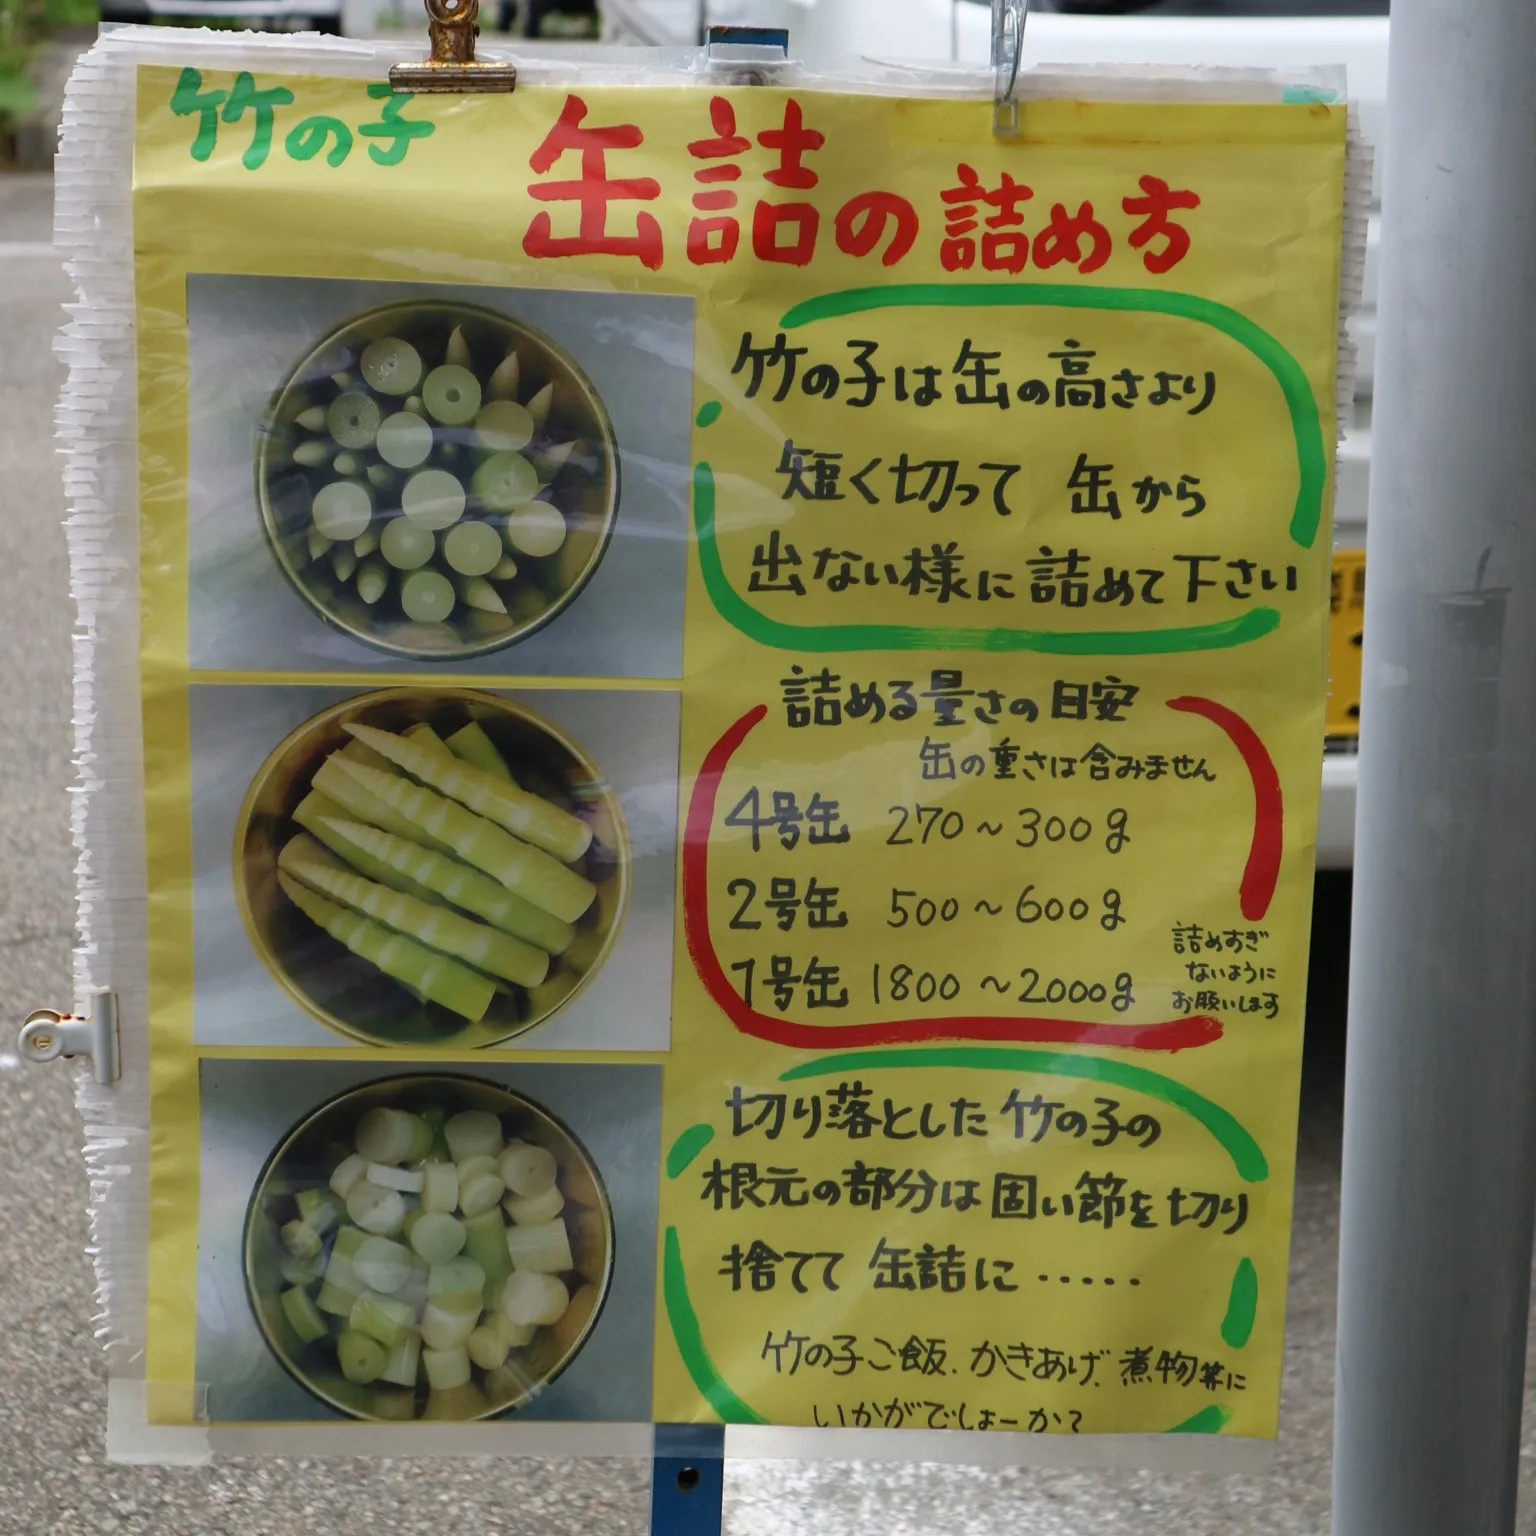 竹の子
缶詰の詰め方
竹の子は缶の高さより
短く切って 缶から
出ない様に詰めて下さい
詰める量さの目安
缶の重さは含みません
4号缶 270～300g
2号缶 500～600g
1号缶 1800～2000g
詰めすぎ
ないように
お願いします
切り落とした竹の子の
根元の部分は固い節を切り
捨てて 缶詰に・・・・・
竹の子ご飯、かきあげ、煮物等に
いかがでしょーか？